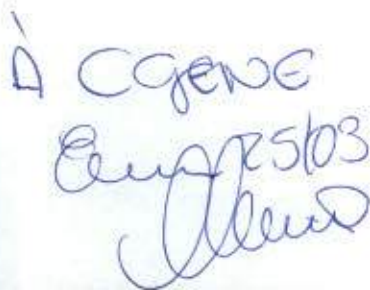 À CGENE
Em 25/03